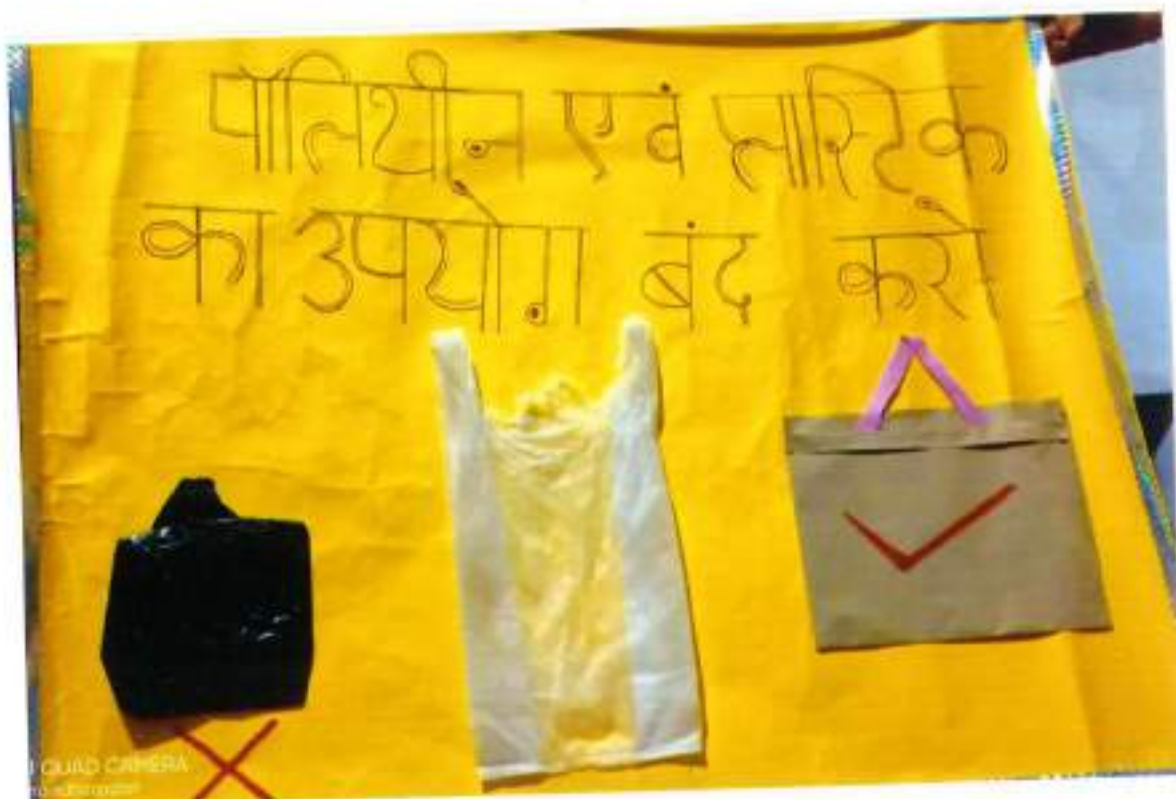 पॉलिथीन एवं प्लास्टिक
का उपयोग बंद करो
QUAD CAMERA